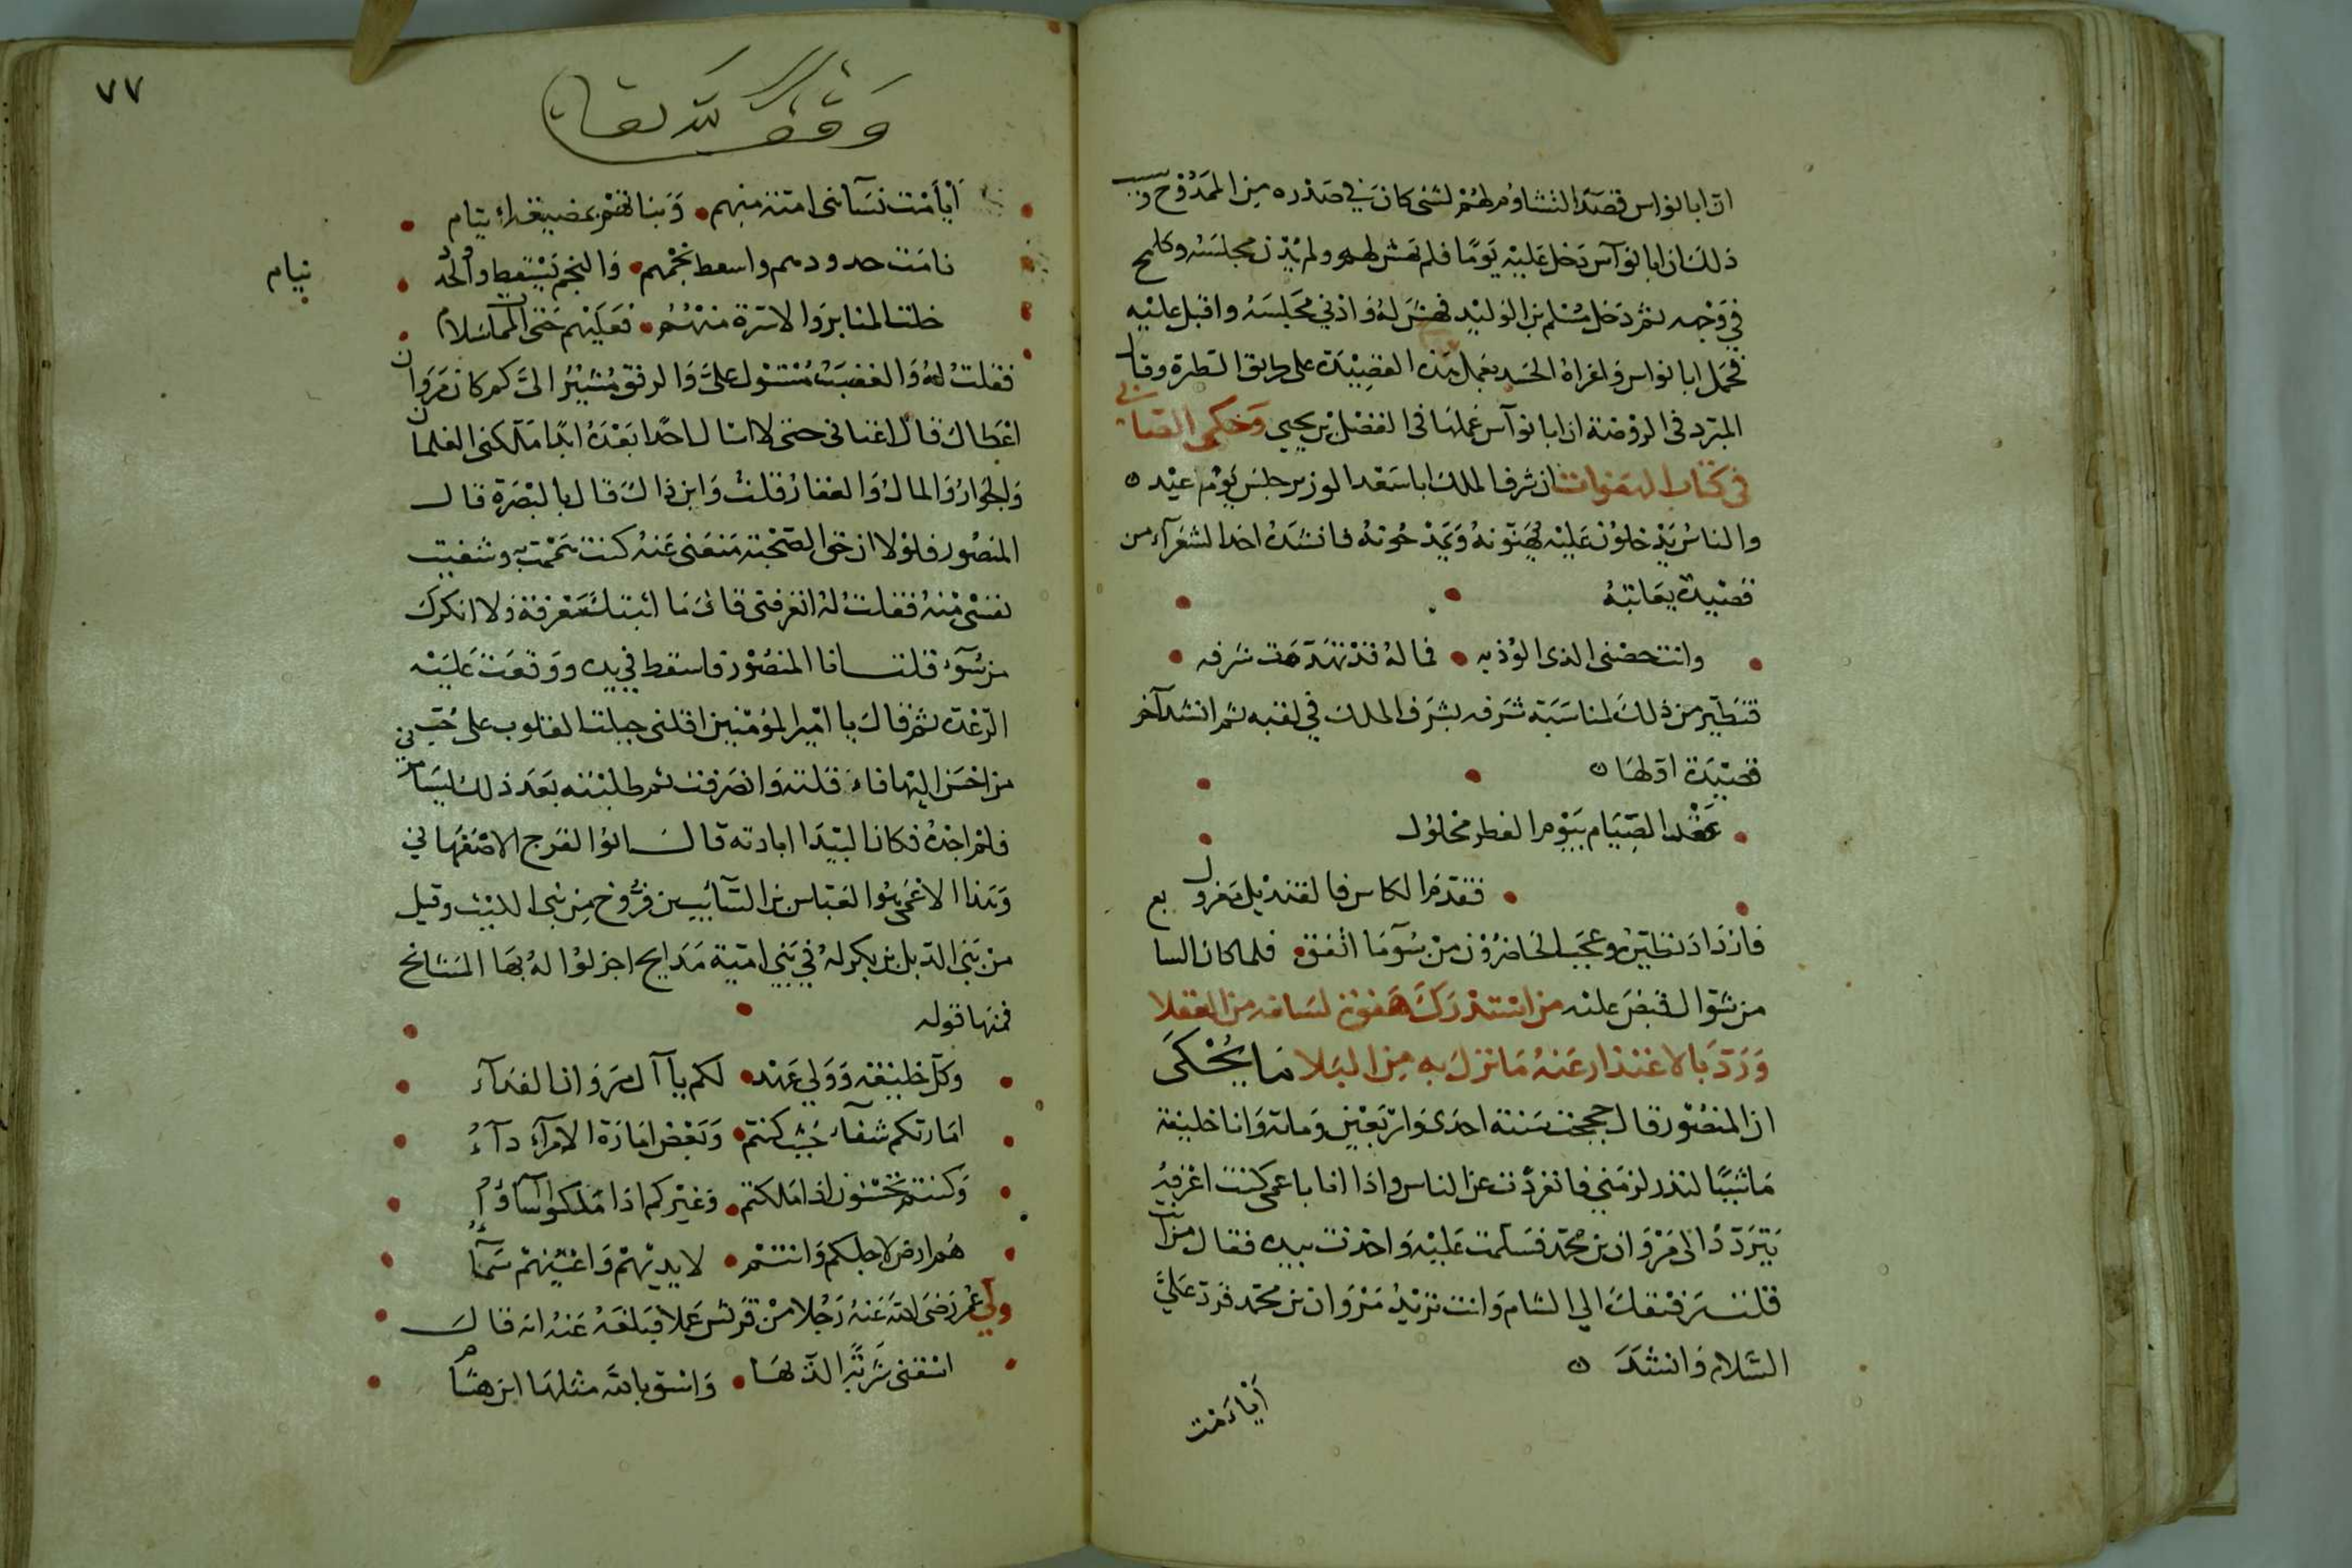 ان ابا نواس قصد التشاؤم لهم لشئ كان في صدره من الممدوح وسبب
ذلك ان ابا نوآس دخل عليه يومًا فلم يهش له ولم يدن مجلسه وكلح
في وجهه ثم دخل مسلم بن الوليد فهش له وادني مجلسه واقبل عليه
فحمل ابا نواس واغراه الحسد بعمل هذه القصيدة على طريق التطيرة وقال
المبرد فى الروضة ان ابا نوآس عملها فى الفضل بن يحيى وحكى الصابى
فى كتاب الهفوات ان شرف الملك ابا سعد الوزير جلس يوم عيد
والناس يدخلون عليه يهنونه ويمدحونه فانشده احد الشعرآء من
قصيدة يعاتبه
وانت حصنى الذى الوذ به فما له قد تهدمت شرفه
فتطير من ذلك لمناسبة شرفه بشرف الملك في لقبه ثم انشد آخر
قصيدة اولها
عقد الصيام بيوم الفطر محلول
فقدم الكاس فالقنديل معزول
فازداد تطيره وعجب الحاضرون من سوء ما اتفق فلما كان السابع
من شوال قبض عليه من استدرك هفوة لسانه من العقلا
ورد بالاعتذار عنه ما نزل به من البلا ما يحكى
ان المنصور قال حججت سنة احدى واربعين ومائة وانا خليفة
ماشيًا لنذر لزمني فانفردت عن الناس واذا انا باعمى كنت اعرفه
يتردد الى مروان بن محمد فسلمت عليه واخذت بيده فقال من انت
قلت رفيقك الي الشام وانت تريد مروان بن محمد فرد علىَّ
السلام وانشد
أيأمت
٧٧
وقف لله تعالى
أيأمت نسآ بنى امية منهم وبناتهم بمضيعة ايتام
نامت جدودهم واسقط نجمهم والنجم يسقط والجد
نيام
خلت المنابر والاسرة منهم فعليهم حتى الممات سلام
فقلت له والغضب مستول علىَّ والرفق مشير الىَّ كم كان مروان
اعطاك قال اغنانى حتى لا اسال احدًا بعده ابدًا ملكنى الغلمان
والجوار والمال والعقار قلت واين ذاك قال بالبصرة قال
المنصور فلولا ان حق الصحبة منعنى عنه كنت هممت به وشفيت
نفسى منه فقلت له اتعرفنى قال ما اثبتك معرفة ولا انكرك
من سوء قلت انا المنصور فاسقط في يده ووقعت عليه
الرعدة ثم قال يا امير المؤمنين اقلنى جبلت القلوب على حب
من احسن اليها قال فاقلته وانصرفت ثم طلبته بعد ذلك ليسامرني
فلم اجده فكان البيدا ابادته قال ابوا الفرج الاصفهاني
وهذا الاعمى ابوا العباس بن السآئب بن فروخ من بنى الليث وقيل
من بنى الديل بن بكر له في بني امية مدايح اجزلوا له بها المنائح
فمنها قوله
وكل خليفة وولي عهد لكم يا آل مروان الفدآء
امارتكم شفآء حيث كنتم وبعض امارة الامرآء دآء
وكنتم تحسنون اذا ملكتم وغيركم اذا ملكوا اسآؤا
هم ارض لارجلكم وانتم لايديهم واعينهم سمآء
ولي عمر رضى الله عنه رجلا من قريش عملا فبلغه عنه انه قال
اسقنى شربة الذ بها واسق بالله مثلها ابن هشام